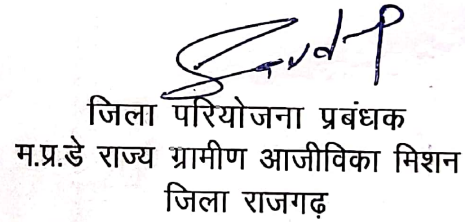 जिला परियोजना प्रबंधक
म.प्र.डे राज्य ग्रामीण आजीविका मिशन
जिला राजगढ़